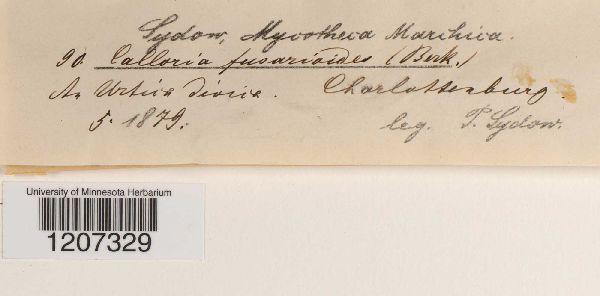 Sydow, Mycotheca Marchica.
90 Calloria fusarioides (Berk.)
An Urtica dioica. Charlottenburg.
5. 1879. leg. P. Sydow.
University of Minnesota Herbarium
1207329